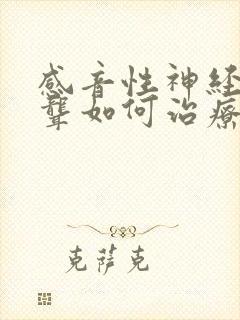 感音性神经
聋如何治疗
克萨克